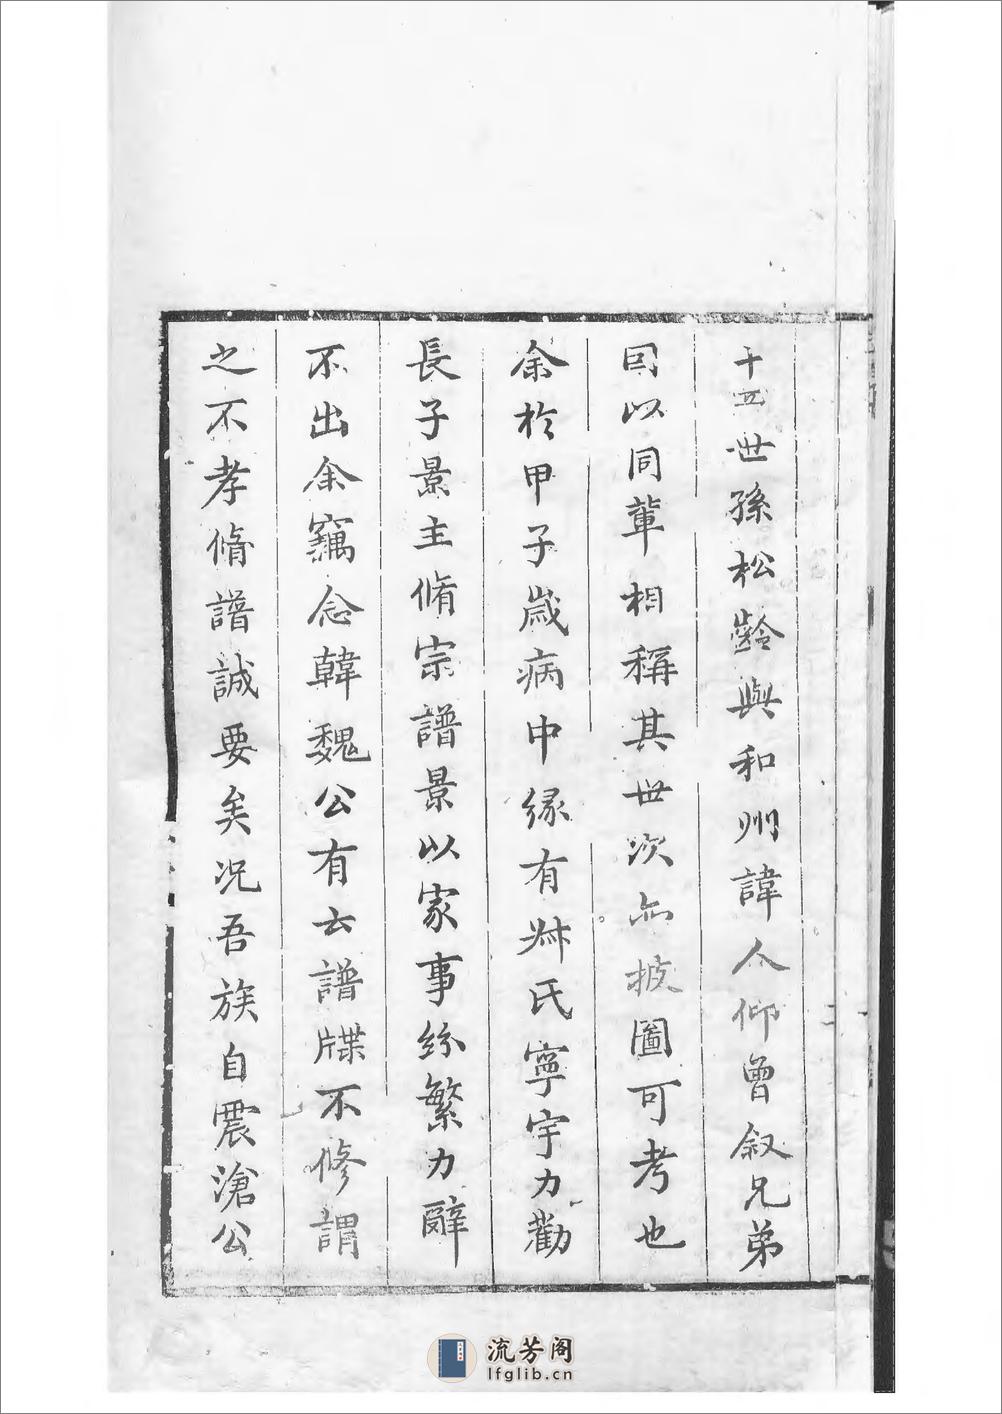 十五世孫松齡與和州諱人仰曾叙兄弟
因以同輩相稱其世次亦披圖可考也
余於甲子歲病中緣有叔氏寧宇力勸
長子景主脩宗譜景以家事紛繁力辭
不出余竊念韓魏公有云譜牒不修謂
之不孝脩譜誠要矣况吾族自震滄公
流芳阁
lfglib.cn